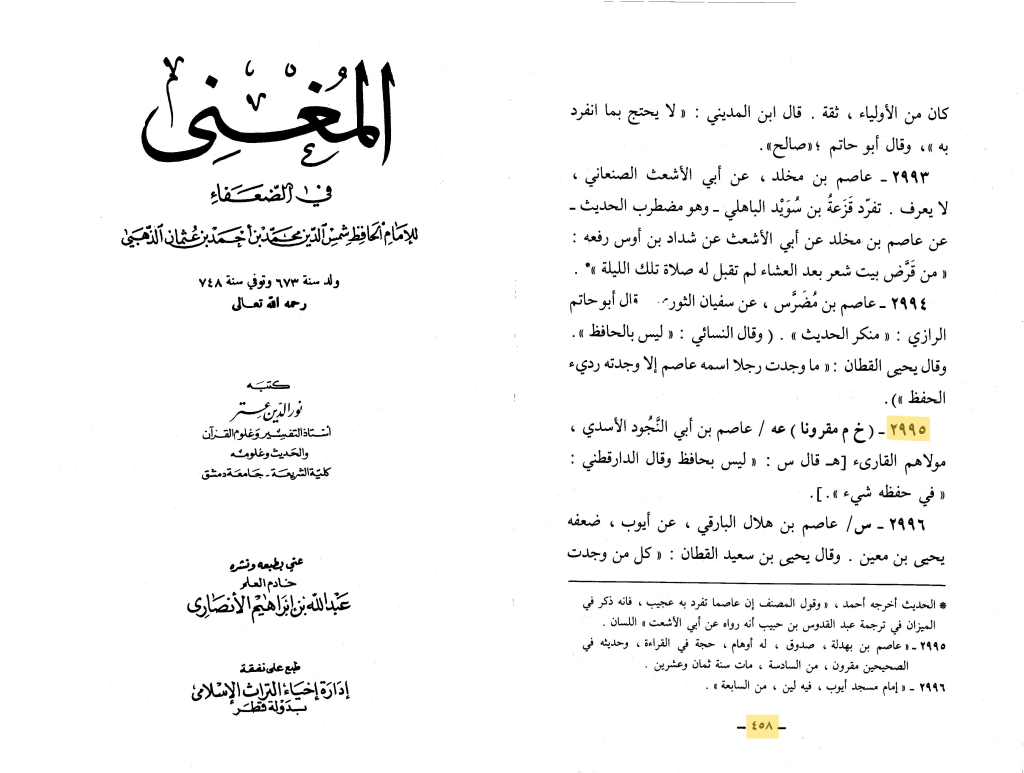 المُغْنِي
في الضّعَفَاء
للإمَام الحَافِظ شمْس الدّين محمّد بن أحمَد بن عُثمان الذّهَبيّ
ولد سنة ٦٧٣ وتوفي سنة ٧٤٨
رحمه الله تعالى
كتبَه
نور الدّين عتر
أستاذ التفسير وعلوم القرآن
والحديث وعلومه
كليّة الشريعة - جامعة دمشق
عني بطبعه ونشره
خادم العلم
عَبْدالله بن إبراهيم الأنصَاري
طبع على نفقة
إدَارة إحيَاء التراث الإسْلامي
بدَولة قطر
كان من الأولياء ، ثقة . قال ابن المديني : « لا يحتج بما انفرد
به »، وقال أبو حاتم ؛«صالح».
٢٩٩٣ ـ عاصم بن مخلد ، عن أبي الأشعث الصنعاني ،
لا يعرف . تفرّد قَزَعةُ بن سُوَيْد الباهلي ـ وهو مضطرب الحديث ـ
عن عاصم بن مخلد عن أبي الأشعث عن شداد بن أوس رفعه :
« من قَرَّض بيت شعر بعد العشاء لم تقبل له صلاة تلك الليلة »* .
٢٩٩٤ ـ عاصم بن مُضَرَّس ، عن سفيان الثوري قال أبوحاتم
الرازي : « منكر الحديث » . ( وقال النسائي : « ليس بالحافظ » .
وقال يحيى القطان :« ما وجدت رجلا اسمه عاصم إلا وجدته رديء
الحفظ »).
٢٩٩٥ ـ (خ م مقرونا) عه / عاصم بن أبي النَّجُود الأسدي ،
مولاهم القارىء [هـ قال س : « ليس بحافظ وقال الدارقطني :
« في حفظه شيء ».].
٢٩٩٦ ـ س/ عاصم بن هلال البارقي ، عن أيوب ، ضعفه
يحيى بن معين . وقال يحيى بن سعيد القطان : « كل من وجدت
* الحديث أخرجه أحمد ، « وقول المصنف إن عاصما تفرد به عجيب ، فانه ذكر في
الميزان في ترجمة عبد القدوس بن حبيب أنه رواه عن أبي الأشعث » اللسان .
٢٩٩٥ ـ « عاصم بن بهدلة ، صدوق ، له أوهام ، حجة في القراءة ، وحديثه في
الصحيحين مقرون ، من السادسة ، مات سنة ثمان وعشرين .
٢٩٩٦ ـ « إمام مسجد أيوب ، فيه لين ، من السابعة » .
ـ ٤٥٨ ـ